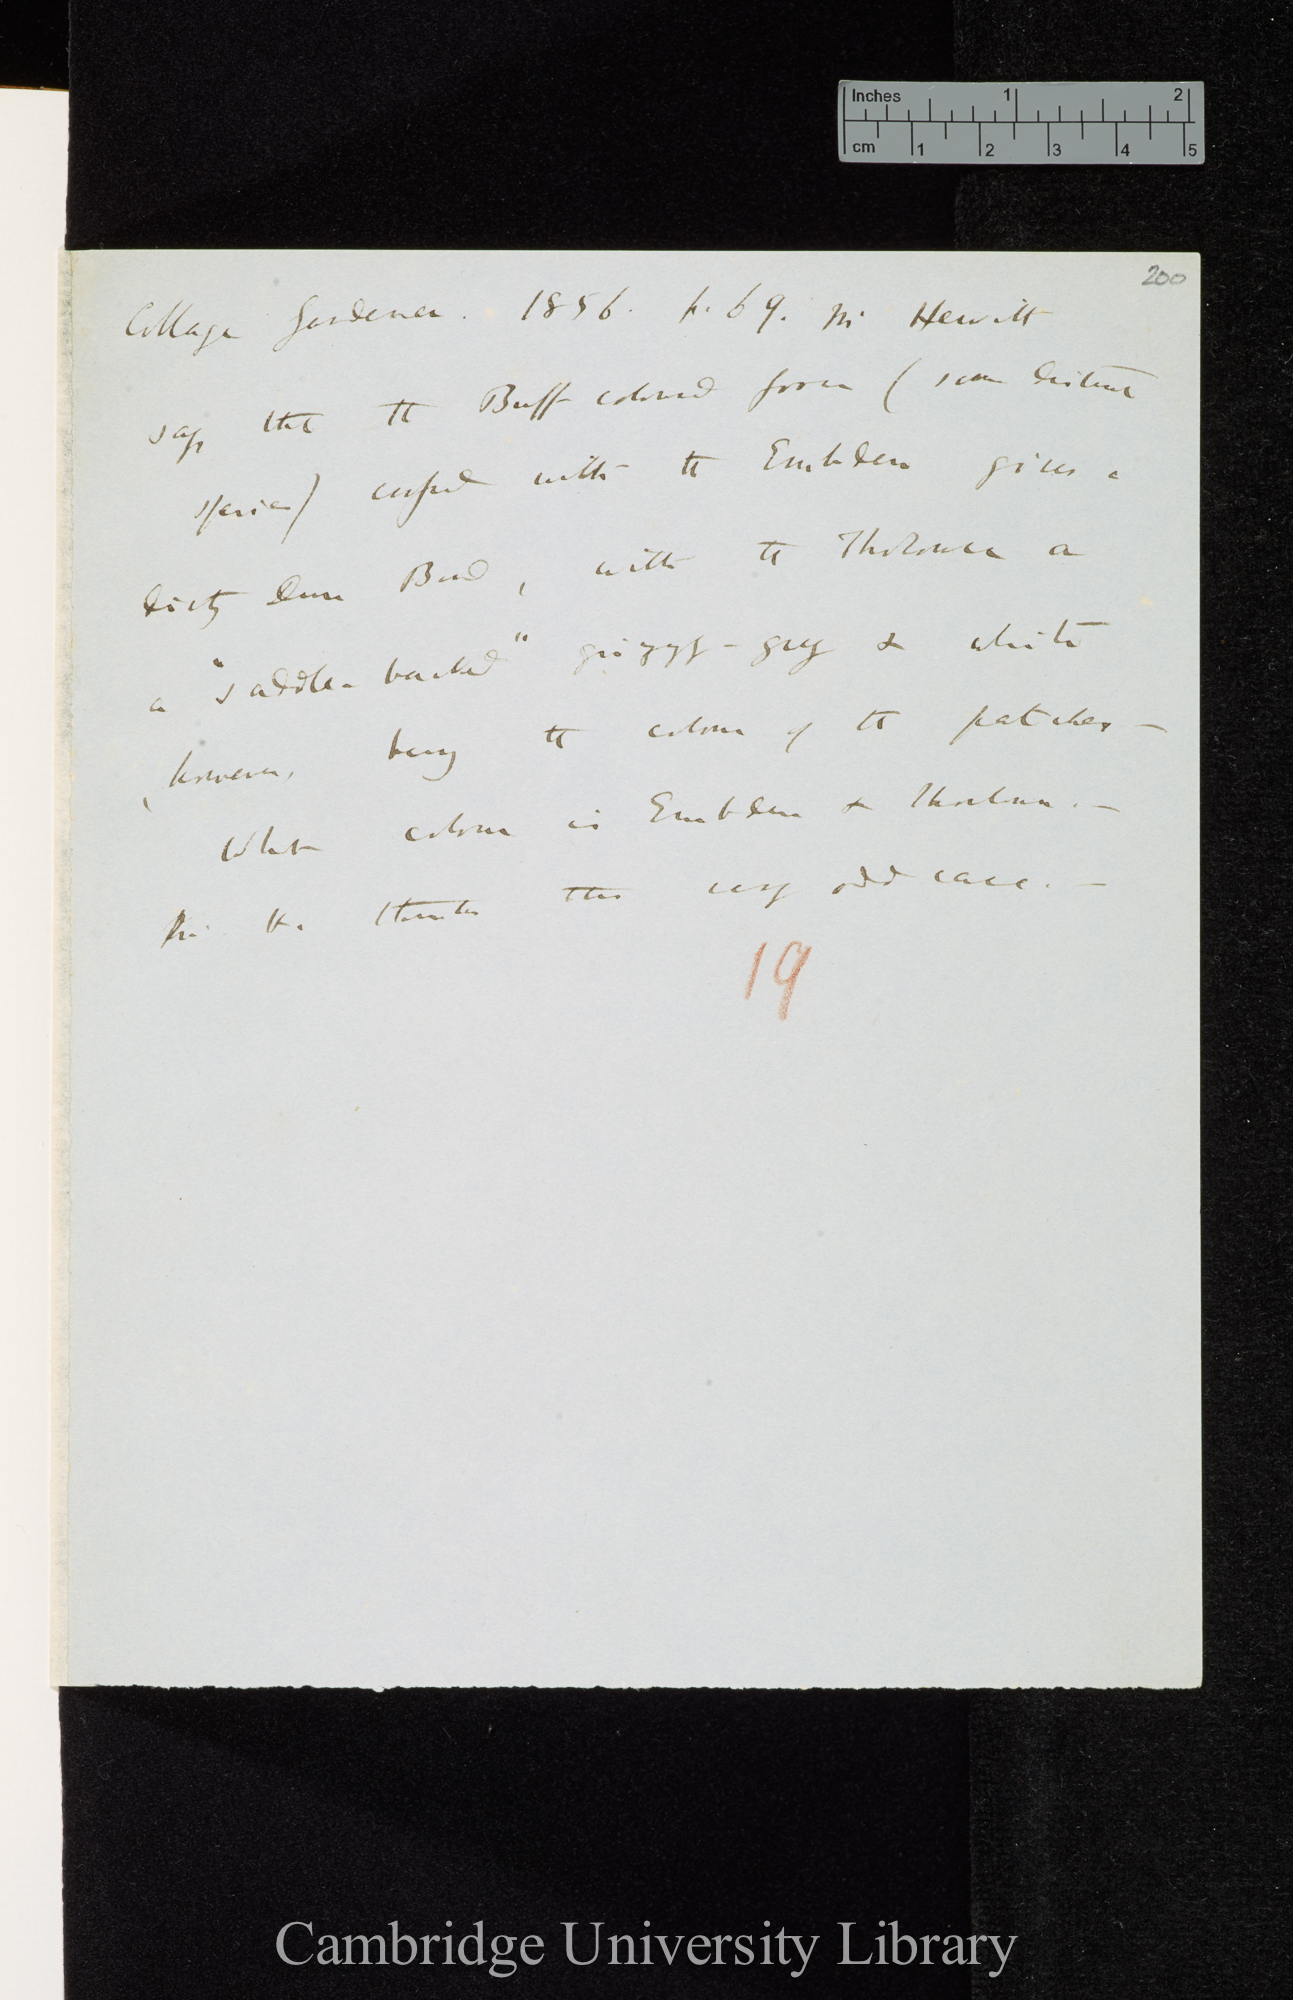 Inches 1 2
cm 1 2 3 4 5
200
Cottage Gardener. 1856. p. 69. Mr Hewitt
says that the Buff coloured Goose (some distinct
species) crossed with the Embden gives a
dirty dun Bird, with the Tholouse a
a "saddle-backed" grizzy-grey & white
, however, being the colour of the patches —
What colour is Embden & Tholouse. —
Mr H. thinks this very odd case. —
19
Cambridge University Library